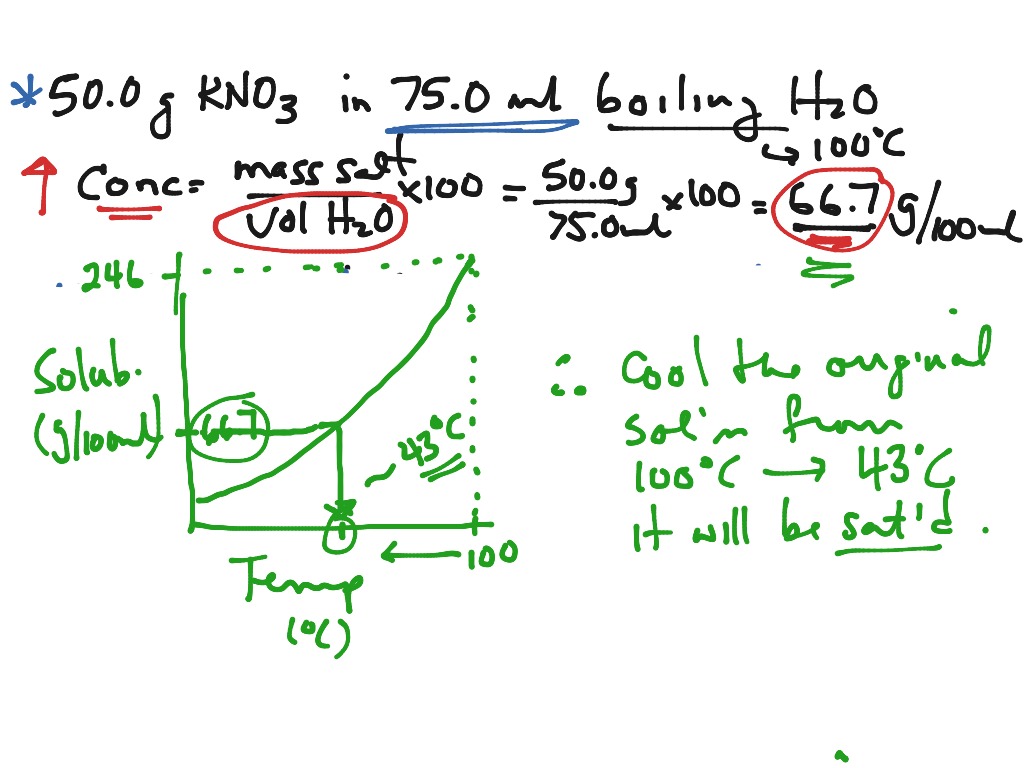 * 50.0 g KNO3 in 75.0 ml boiling H2O
↳ 100°C
↑ Conc = mass salt / vol H2O × 100 = 50.0g / 75.0ml × 100 = 66.7 g/100ml
246
Solub.
(g/100ml)
66.7
43°C
100
Temp
(°C)
∴ Cool the original
sol'n from
100°C → 43°C
It will be sat'd.